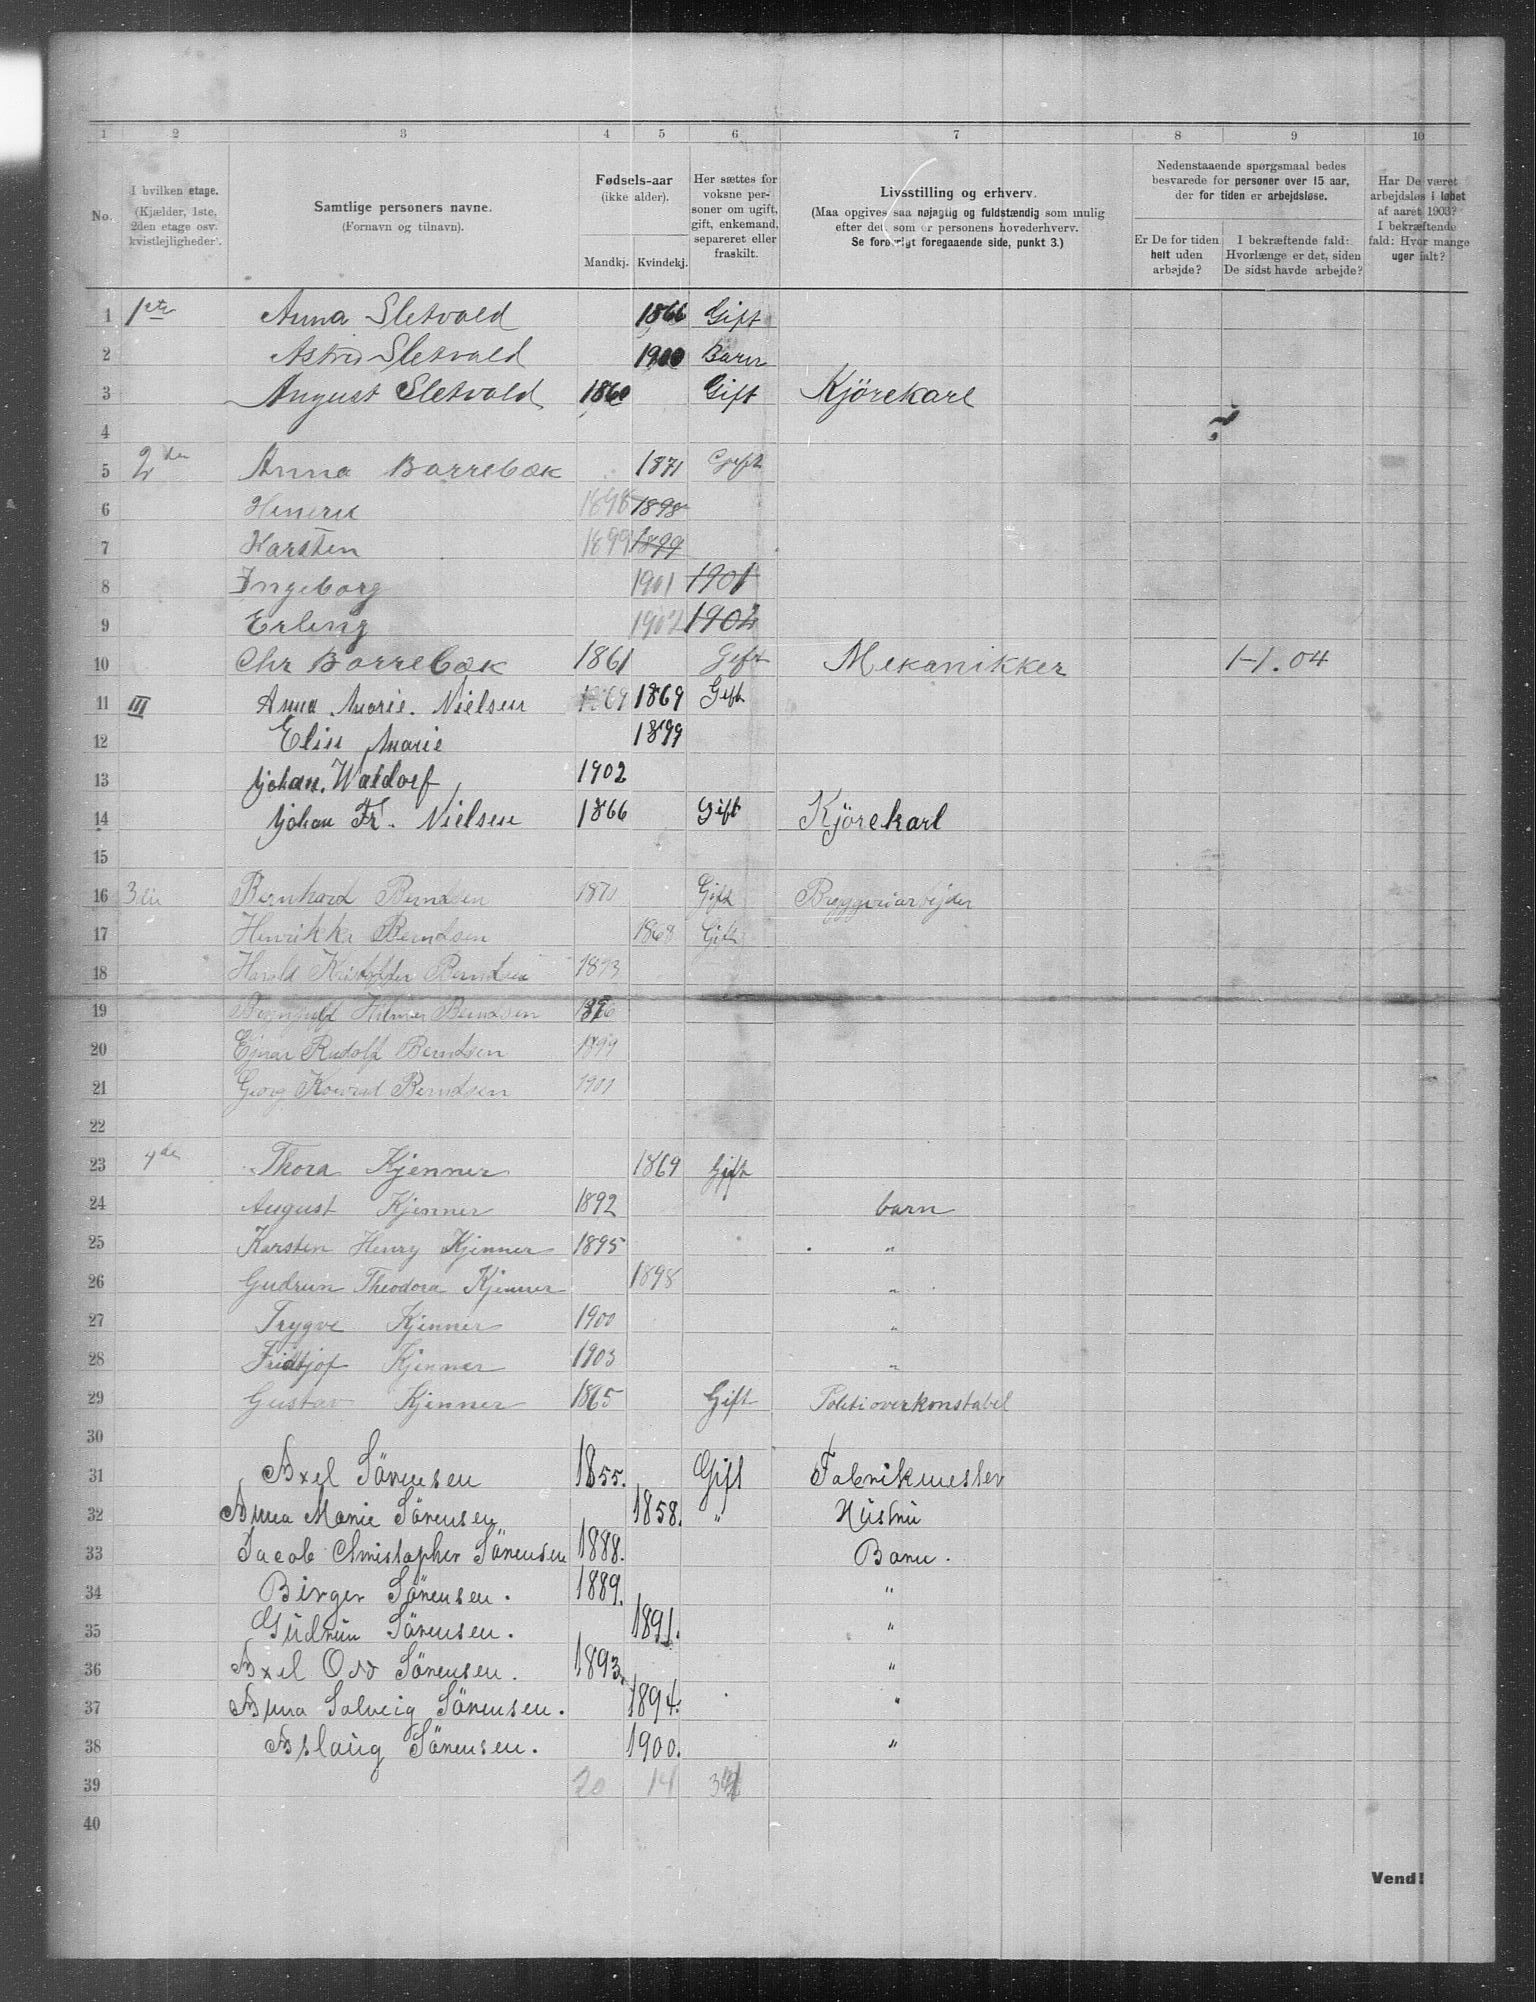 1 2 3 4 5 6 7 8 9 10
No.
I hvilken etage.
(Kjælder, 1ste,
2den etage osv.
kvistlejligheder).
Samtlige personers navne.
(Fornavn og tilnavn).
Fødsels-aar
(ikke alder).
Mandkj. Kvindekj.
Her sættes for
voksne per-
soner om ugift,
gift, enkemand,
separeret eller
fraskilt.
Livsstilling og erhverv.
(Maa opgives saa nøjagtig og fuldstændig som mulig
efter det, som er personens hovederhverv.
Se forøvrigt foregaaende side, punkt 3.)
Nedenstaaende spørgsmaal bedes
besvarede for personer over 15 aar,
der for tiden er arbejdsløse.
Er De for tiden
helt uden
arbejde?
I bekræftende fald:
Hvorlænge er det, siden
De sidst havde arbejde?
Har De været
arbejdsløs i løbet
af aaret 1903?
I bekræftende
fald: Hvor mange
uger ialt?
1 1ste Anna Sletvold 1866 Gift
2 Astrid Sletvold 1900 Barn
3 August Sletvold 1860 Gift Kjörekarl
4
5 2den Anna Borrebæk 1871 Gift
6 1898 1898
7 Karsten 1899 1899
8 Ingeborg 1901 1901
9 Erling 1902 1902
10 Chr Borrebæk 1861 Gift Mekanikker 1-1.04
11 III Anna Marie. Nielsen 1869 1869 Gift
12 Elin Marie 1899
13 Johan. Waldorf 1902
14 Johan Fr. Nielsen 1866 Gift Kjörekarl
15
16 3die Bernhard Berndsen 1870 Gift Bryggeriarbejder
17 Henrikke Berndsen 1868 Gift
18 Harald Kristoffer Berndsen 1893
19 Hilmer Berndsen 1896
20 Ejnar Rudolf Berndsen 1899
21 Georg Konrad Berndsen 1901
22
23 4de Thora Kjenner 1869 Gift
24 August Kjenner 1892 barn
25 Karsten Henry Kjenner 1895 "
26 Gudrun Theodora Kjenner 1898 "
27 Trygve Kjenner 1900 "
28 Fridtjof Kjenner 1903 "
29 Gustav Kjenner 1865 Gift Politioverkonstabel
30
31 Axel Sörensen 1855. Gift Fabrikmester
32 Anna Marie Sörensen 1858. " Hustru
33 Jacob Christopher Sörensen 1888. Barn.
34 Birger Sörensen. 1889. "
35 Gudrun Sörensen. 1891. "
36 Axel Odd Sörensen. 1893. "
37 Anna Solveig Sörensen. 1894. "
38 Aslaug Sörensen. 1900. "
39 20 14 34
40
Vend!